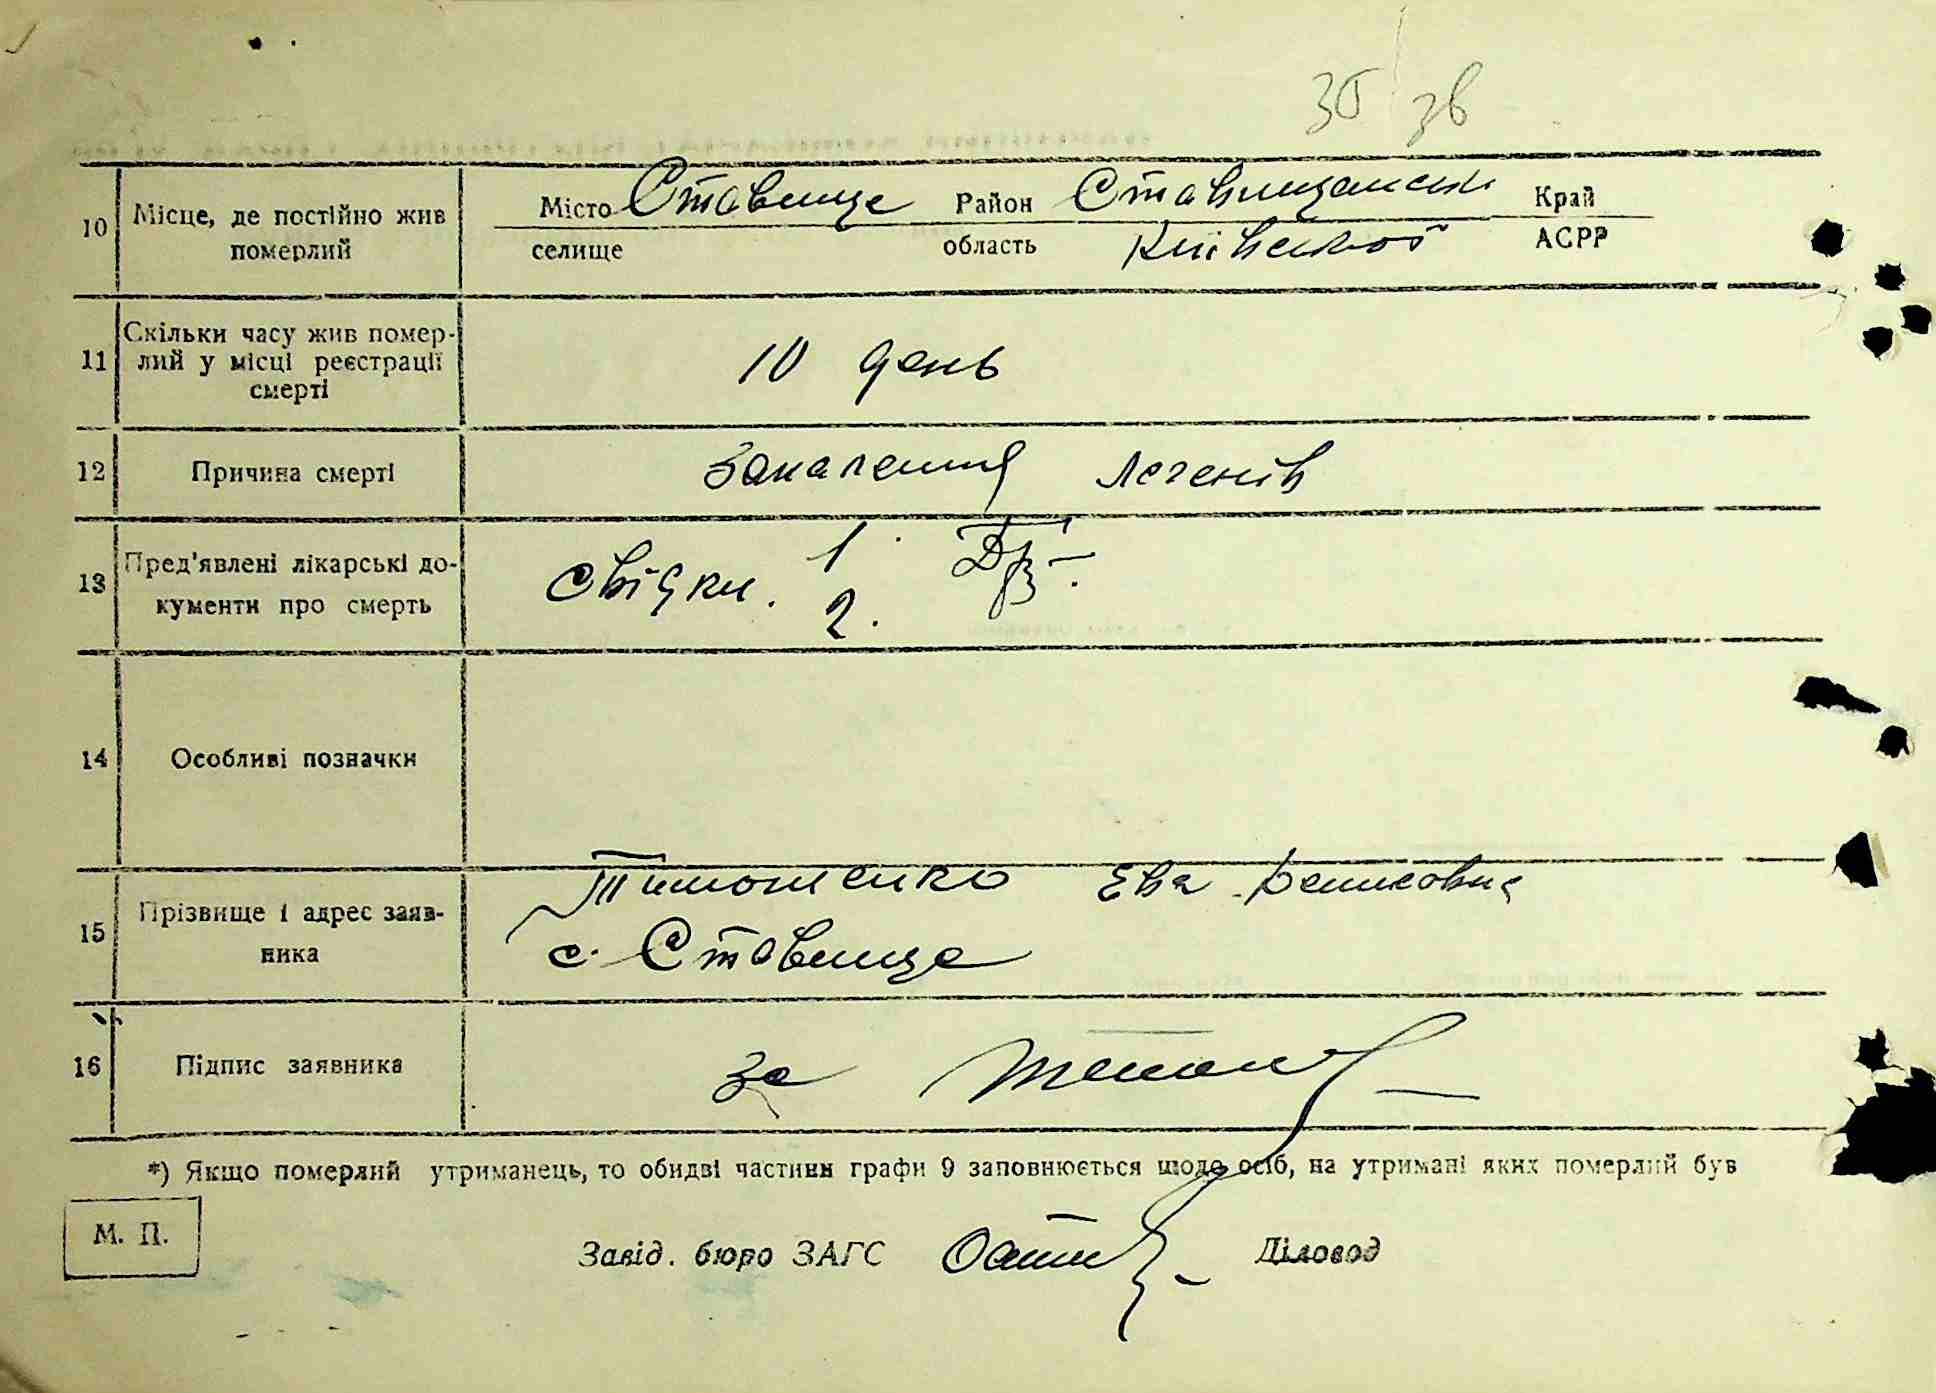 зб зв
10 Місце, де постійно жив померлий Місто Ставище Район Ставищанськ Край
селище область Київської АСРР
11 Скільки часу жив помер-
лий у місці реєстрації
смерті 10 день
12 Причина смерті Запалення легенів
13 Пред'явлені лікарські до-
кументи про смерть Свідки. 1. 2.
14 Особливі позначки
15 Прізвище і адрес заяв-
ника Тимошенко Ева Денисовна
с. Ставище
16 Підпис заявника за
*) Якщо померлий утриманець, то обидві частини графи 9 заповнюється щодо осіб, на утримані яких померлий був
М. П.
Завід. бюро ЗАГС Діловод